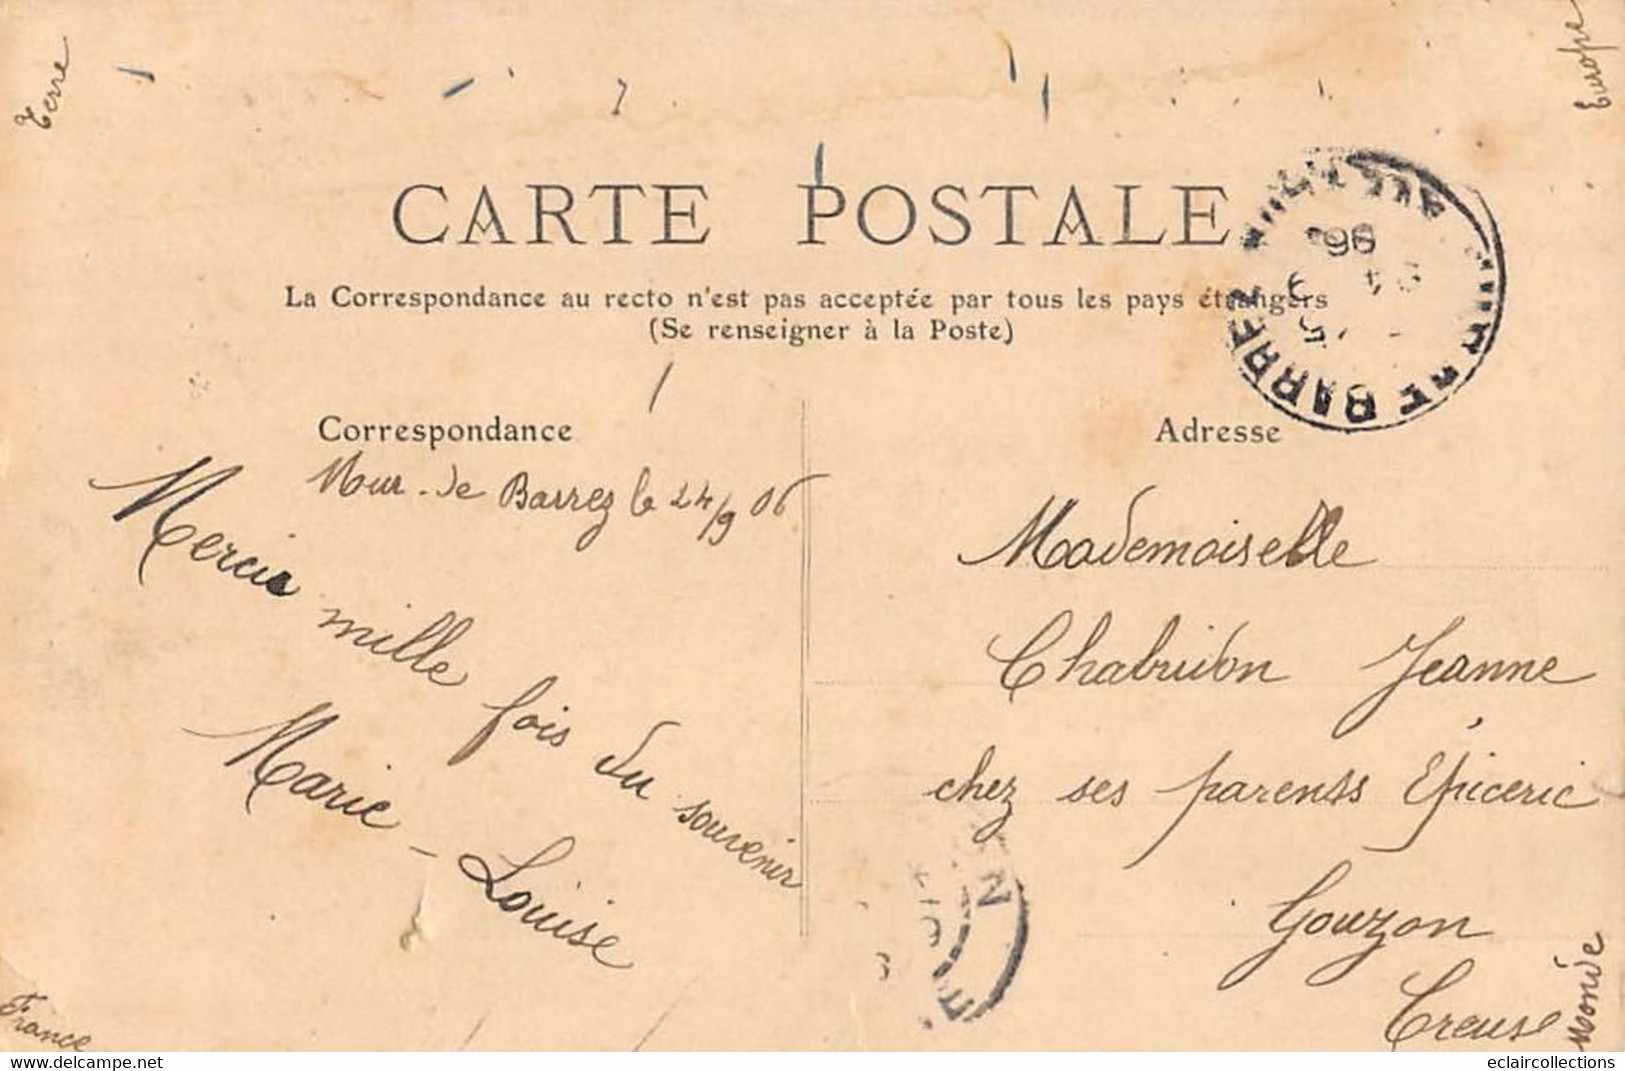 Terre
Europe
CARTE POSTALE
La Correspondance au recto n'est pas acceptée par tous les pays étrangers
(Se renseigner à la Poste)
BARREZ
Correspondance
Mur-de Barrez le 24/9 06
Mercis mille fois du souvenir
Marie-Louise
Adresse
Mademoiselle
Chabridon Jeanne
chez ses parents Épicerie
Gouzon
Creuse
France
Monde
eclaircollections